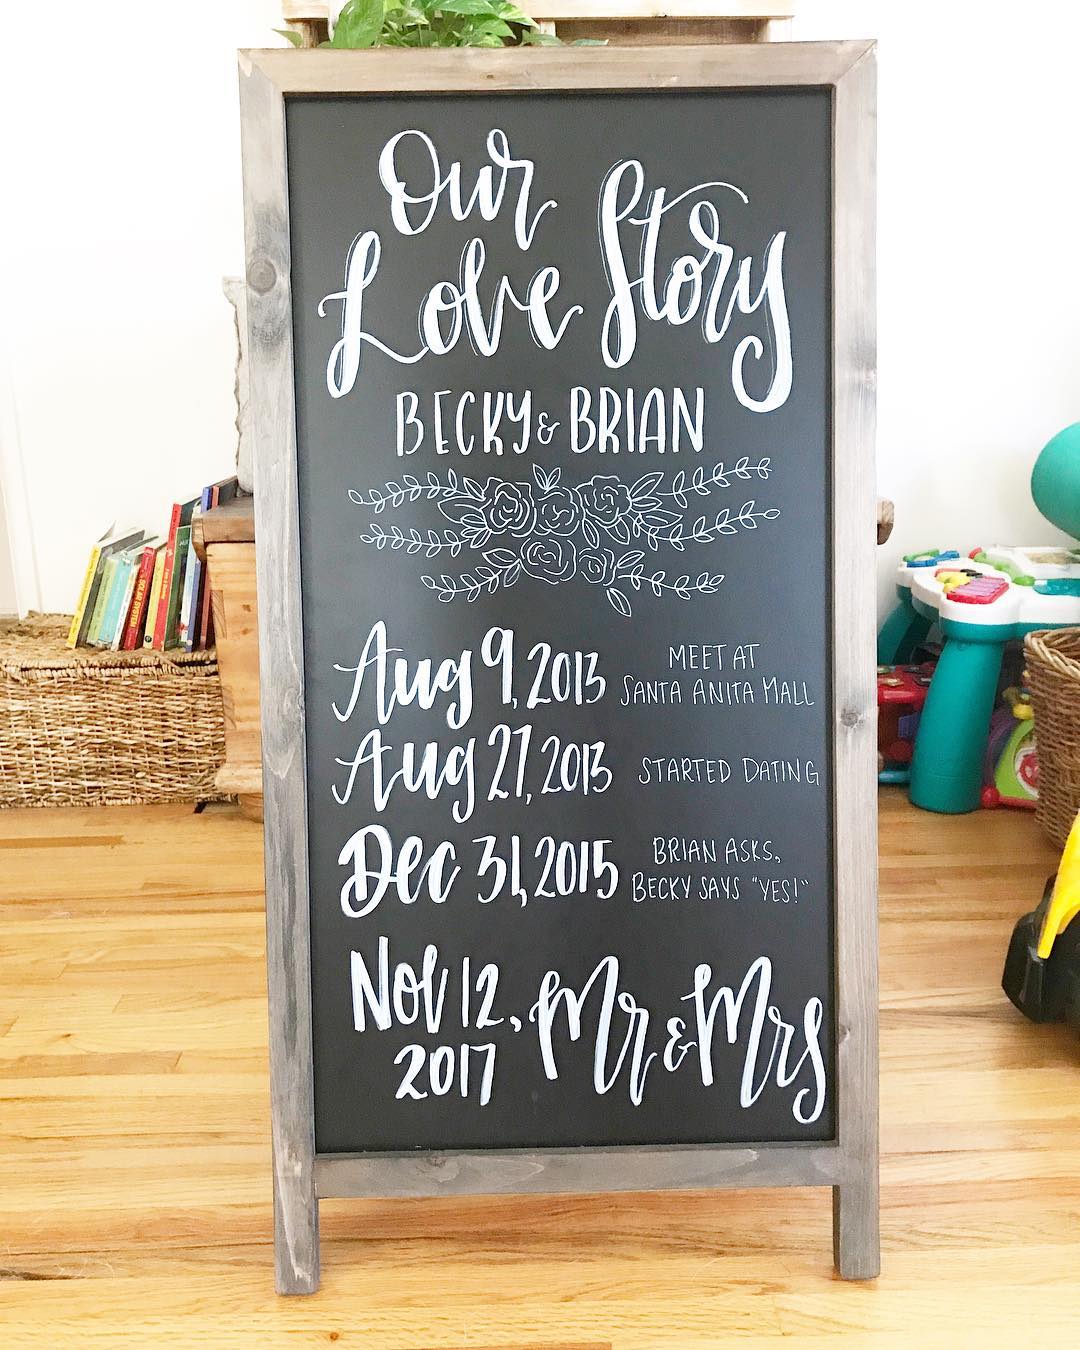 Our
Love Story
BECKY & BRIAN
Aug 9, 2013 MEET AT
SANTA ANITA MALL
Aug 27, 2013 STARTED DATING
Dec 31, 2015 BRIAN ASKS,
BECKY SAYS "YES!"
Nov 12, 2017 Mr & Mrs
SOLAR SYSTEM